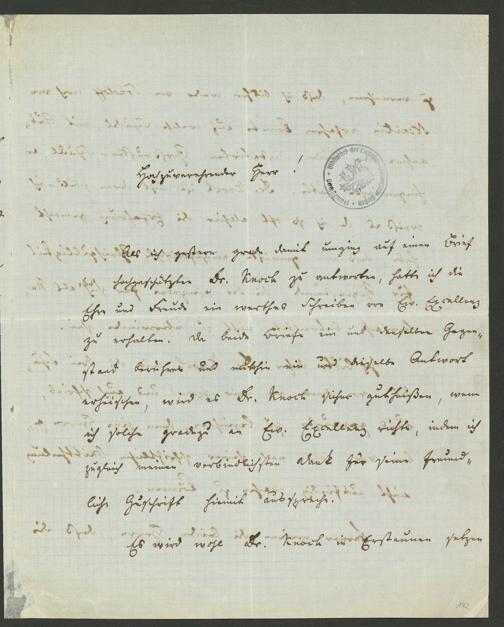 Hochzuverehrender Herr!
Als ich gestern grade damit umging auf einen Brief
des hochgeschätzten Dr. Knoch zu antworten, hatte ich die
Ehre und Freude ein werthes Schreiben von Ew. Excellenz
zu erhalten. Da beide Briefe ein und denselben Gegen-
stand berühren und mithin ein und dieselbe Antwort
erheischen, wird es Dr. Knoch sicher gutheißen, wenn
ich solche gradezu an Ew. Excellenz richte, indem ich
zugleich meinen verbindlichsten Dank für seine freund-
liche Zuschrift hiemit ausspreche.
Es wird wohl Dr. Knoch in Erstaunen setzen
192